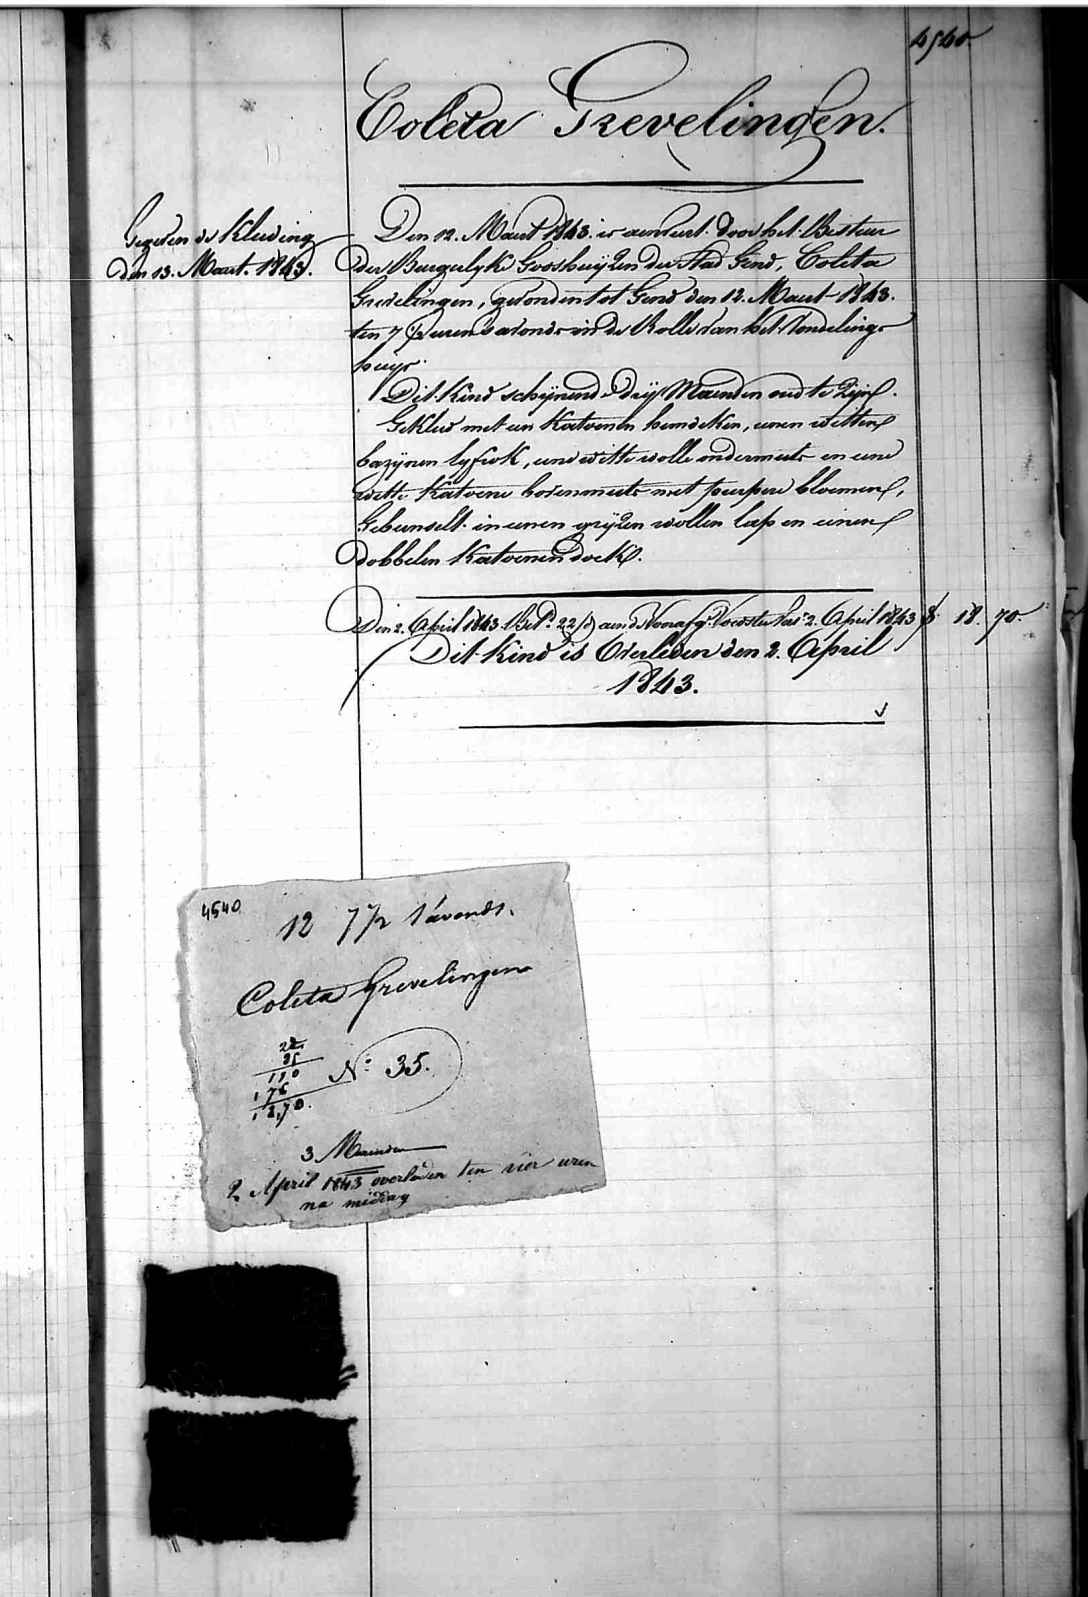 4540.
Coleta Grevelingen.
Gegeven de Kleeding
den 13. Maert. 1843.
Den 12. Maert 1843. is aenveert door het Bestuer
der Burgerlyke Godshuyzen der Stad Gend, Coleta
Grevelingen, gevonden tot Gend den 12. Maert 1843.
ten 7 1/2 uren 's avonds in de Rolle van het Vondelings
huys.
Dit Kind schynende dry Maenden oud te zyn.
Gekleed met een Katoenen hemdeken, eenen witten
bazynen lyfrok, eene witte wolle ondermuts en eene
witte Katoene bovenmuts met peerpere bloemen,
Gebunselt in eenen gryzen wollen lap en eenen
dobbelen Katoenen doek.
Den 2. April 1843 Bet. 22 aen 2. April 1843 f. 18. 70.
Dit Kind is Overleden den 2. April
1843.
4540
12 7 1/2 s'avonds.
Coleta Grevelingen
22
85
110
176
18,70.
N.o 35.
3 Maenden
2 April 1843 overleden ten vier uren
na middag